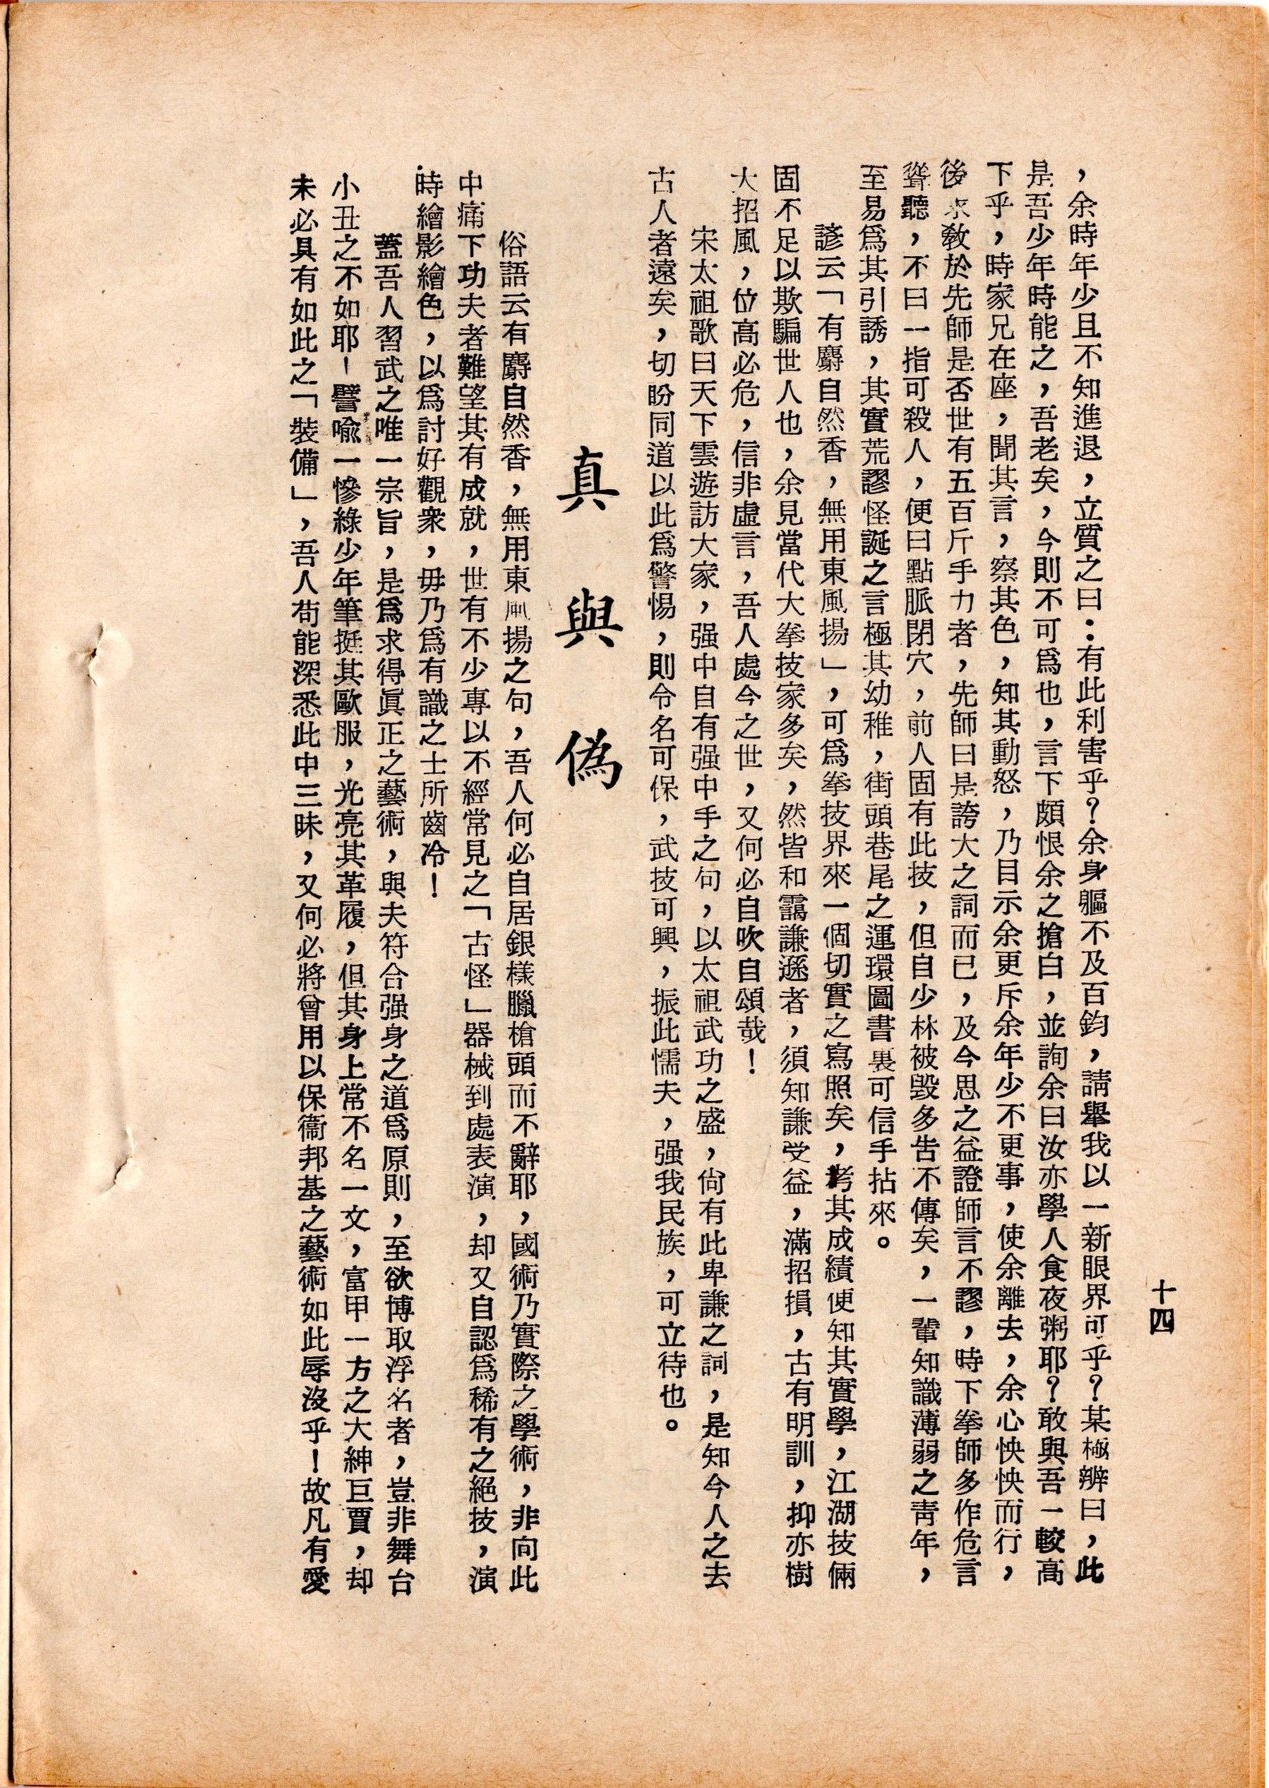 十四
，余時年少且不知進退，立質之曰：有此利害乎？余身軀不及百鈞，請舉我以一新眼界可乎？某極辨曰，此
是吾少年時能之，吾老矣，今則不可爲也，言下頗恨余之搶白，並詢余曰汝亦學人食夜粥耶？敢與吾一較高
下乎，時家兄在座，聞其言，察其色，知其動怒，乃目示余更斥余年少不更事，使余離去，余心怏怏而行，
後來敎於先師是否世有五百斤手力者，先師曰是誇大之詞而已，及今思之益證師言不謬，時下拳師多作危言
聳聽，不曰一指可殺人，便曰點脈閉穴，前人固有此技，但自少林被毀多告不傳矣，一輩知識薄弱之靑年，
至易爲其引誘，其實荒謬怪誕之言極其幼稚，街頭巷尾之運環圖書裏可信手拈來。
諺云「有麝自然香，無用東風揚」，可爲拳技界來一個切實之寫照矣，考其成績便知其實學，江湖技倆
固不足以欺騙世人也，余見當代大拳技家多矣，然皆和靄謙遜者，須知謙受益，滿招損，古有明訓，抑亦樹
大招風，位高必危，信非虛言，吾人處今之世，又何必自吹自頌哉！
宋太祖歌曰天下雲遊訪大家，强中自有强中手之句，以太祖武功之盛，尙有此卑謙之詞，是知今人之去
古人者遠矣，切盼同道以此爲警惕，則令名可保，武技可興，振此懦夫，强我民族，可立待也。
真與偽
俗語云有麝自然香，無用東風揚之句，吾人何必自居銀樣臘槍頭而不辭耶，國術乃實際之學術，非向此
中痛下功夫者難望其有成就，世有不少專以不經常見之「古怪」器械到處表演，却又自認爲稀有之絕技，演
時繪影繪色，以爲討好觀衆，毋乃爲有識之士所齒冷！
蓋吾人習武之唯一宗旨，是爲求得眞正之藝術，與夫符合强身之道爲原則，至欲博取浮名者，豈非舞台
小丑之不如耶！譬喩一慘綠少年筆挺其歐服，光亮其革履，但其身上常不名一文，富甲一方之大紳巨賈，却
未必具有如此之「裝備」，吾人苟能深悉此中三昧，又何必將曾用以保衞邦基之藝術如此辱沒乎！故凡有愛